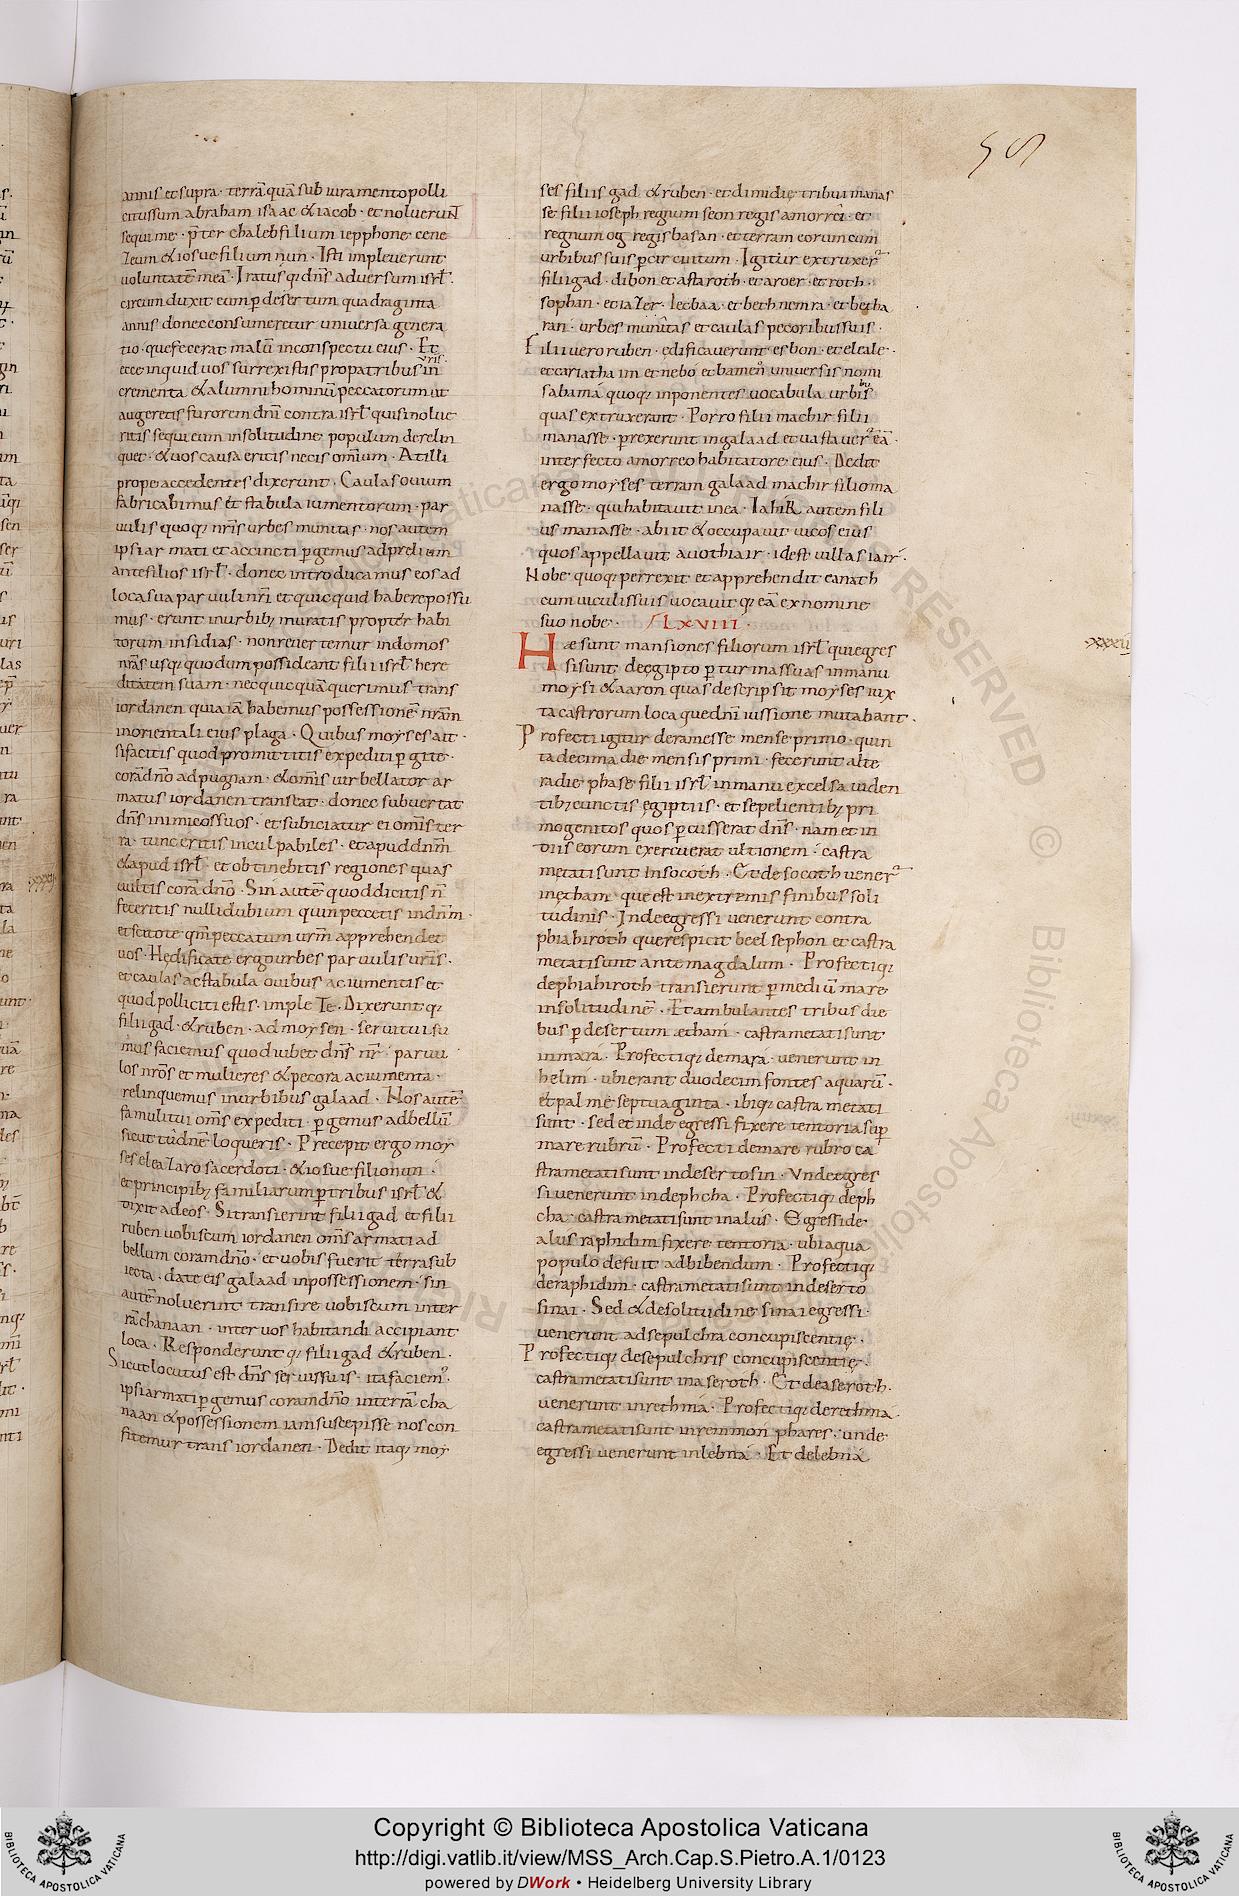 58
annis et supra · terrã quã sub iuramento polli
citus sum abraham isaac & iacob · et noluerunt
sequi me · pter chaleb filium iepphone cene
zeum & iosue filium nun · Isti impleverunt
voluntatẽ meã · Iratus q; dñs adversum isrl̃ ·
circumduxit eum p desertum quadraginta
annis donec consumeretur universa genera
tio · que fecerat malũ in conspectu eius · Et
ecce inquid vos surrexistis pro patribus uris in
crementa & alumni hominũ peccatorum ut
augeretis furorem dñi contra isrl̃ qui si nolue
ritis sequi eum in solitudine populum derelin
quet · & vos causa eritis necis omnium · At illi
prope accedentes dixerunt · Caulas ovium
fabricabimus et stabula iumentorum · par
vulis quoq; nr̃is urbes munitas · nos autem
ipsi armati et accincti pgemus ad prelium
ante filios isrl̃ · donec introducamus eos ad
loca sua parvuli nr̃i et quicquid habere possu
mus · erunt in urbib; muratis propter habi
tatorum insidias · non revertemur in domos
nr̃as usq; quo dum possideant filii isrl̃ here
ditatem suam · nec quicquã querimus trans
iordanen quia iã habemus possessionẽ nr̃am
in orientali eius plaga · Quibus moyses ait ·
si facitis quod promittitis expediti pgite ·
corã dño ad pugnam · & omis vir bellator ar
matus iordanen transeat · donec subvertat
dñs inimicos suos · et subiciatur ei omis ter
ra · tunc eritis inculpabiles · et apud dñm
& apud isrl̃ · et obtinebitis regiones quas
vultis corã dño · Sin autẽ quod dicitis ñ
feceritis nulli dubium quin peccetis in dñm ·
et scitote qm̃ peccatum vr̃m apprehendet
vos · Hędificate ergo urbes parvulis vr̃is ·
et caulas ac stabula ovibus ac iumentis et
quod polliciti estis · implete · Dixerunt q;
filii gad · & ruben · ad moysen · servi tui su
mus faciemus quod iubet dñs nr̃ · parvu
los nr̃os et mulieres & pecora ac iumenta ·
relinquemus in urbibus galaad · Nos autẽ
famuli tui om̃s expediti · pgemus ad bellũ
sicut tu dñe loqueris · Precepit ergo moy
ses eleazaro sacerdoti · & iosue filio nun ·
et principib; familiarum p tribus isrl̃ &
dixit ad eos · Si transierint filii gad et filii
ruben vobiscum iordanen om̃s armati ad
bellum coram dño · et vobis fuerit terra sub
iecta · date eis galaad in possessionem · sin
autẽ noluerint transire vobiscum in ter
rã chanaan · inter vos habitandi accipiant
loca · Responderunt q; filii gad & ruben ·
Sicut locutus est dñs servis suis · ita faciem᷒ ·
ipsi armati pgemus coram dño in terrã cha
naan & possessionem iam suscepisse nos con
fitemur trans iordanen · Dedit itaq; moy
ses filiis gad & ruben · et dimidię tribui manas
se filii ioseph regnum seon regis amorrei · et
regnum og regis basan · et terram eorum cum
urbibus suis p circuitum · Igitur extruxer̃
filii gad · dibon et astaroth · et aroer · et roth
sophan · et iazer · iecbaa · et beth nemra · et betha
ran · urbes munitas et caulas pecoribus suis ·
Filii vero ruben · edificaverunt esbon · et eleale ·
et cariathaim et nebo et bameñ universis nomi
sabamá quoq; inponentes vocabula urbibus
quas extruxerant · Porro filii machir filii
manasse · prexerunt in galaad et vastaver̃ eã ·
interfecto amorreo habitatore eius · Dedit
ergo moyses terram galaad machir filio ma
nasse · qui habitavit in ea · Iahir autem fili
us manasse · abiit & occupavit vicos eius
quos appellavit avothiair · id est villas iair ·
Nobe quoq; perrexit et apprehendit canath
cum viculis suis vocavit q; eã ex nomine
suo nobe · LXVIII ·
Hæ sunt mansiones filiorum isrl̃ qui egres
si sunt de ęgipto p turmas suas in manu
moysi & aaron quas descripsit moyses iux
ta castrorum loca que dñi iussione mutabant ·
xxxiii
Profecti igitur de ramesse mense primo · quin
ta decima die mensis primi · fecerunt alte
ra die phase filii isrl̃ in manu excelsa viden
tib; cunctis ęgiptiis · et sepelientib; pri
mogenitos quos pcusserat dñs · nam et in
diis eorum exercuerat ultionem · castra
metati sunt in socoth · Et de socoth vener̃
in ętham · que est in extremis finibus soli
tudinis · Inde egressi venerunt contra
phiahiroth que respicit beel sephon et castra
metati sunt ante magdalum · Profectiq;
de phiahiroth transierunt p mediũ mare
in solitudinẽ · Et ambulantes tribus die
bus p desertum ætham · castra metati sunt
in mara · Profectiq; de mara · venerunt in
helim · ubi erant duodecim fontes aquarũ ·
et palme septuaginta · ibiq; castra metati
sunt · sed et inde egressi fixere tentoria sup
mare rubrũ · Profecti de mare rubro ca
strametati sunt in deserto sin · Unde egres
si venerunt in dephcha · Profectiq; deph
cha · castra metati sunt in alus · Egressi de
alus raphidim fixere tentoria · ubi aqua
populo defuit ad bibendum · Profectiq;
de raphidim · castra metati sunt in deserto
sinai · Sed & de solitudine sinai egressi ·
venerunt ad sepulchra concupiscentię ·
Profectiq; de sepulchris concupiscentię ·
castra metati sunt in aseroth · Et de aseroth ·
venerunt in rethma · Profectiq; de rethma ·
castra metati sunt in remmon phares · unde
egressi venerunt in lebná · Et de lebná
Copyright © Biblioteca Apostolica Vaticana
http://digi.vatlib.it/view/MSS_Arch.Cap.S.Pietro.A.1/0123
powered by DWork • Heidelberg University Library
BIBLIOTECA APOSTOLICA VATICANA
BIBLIOTECA APOSTOLICA VATICANA